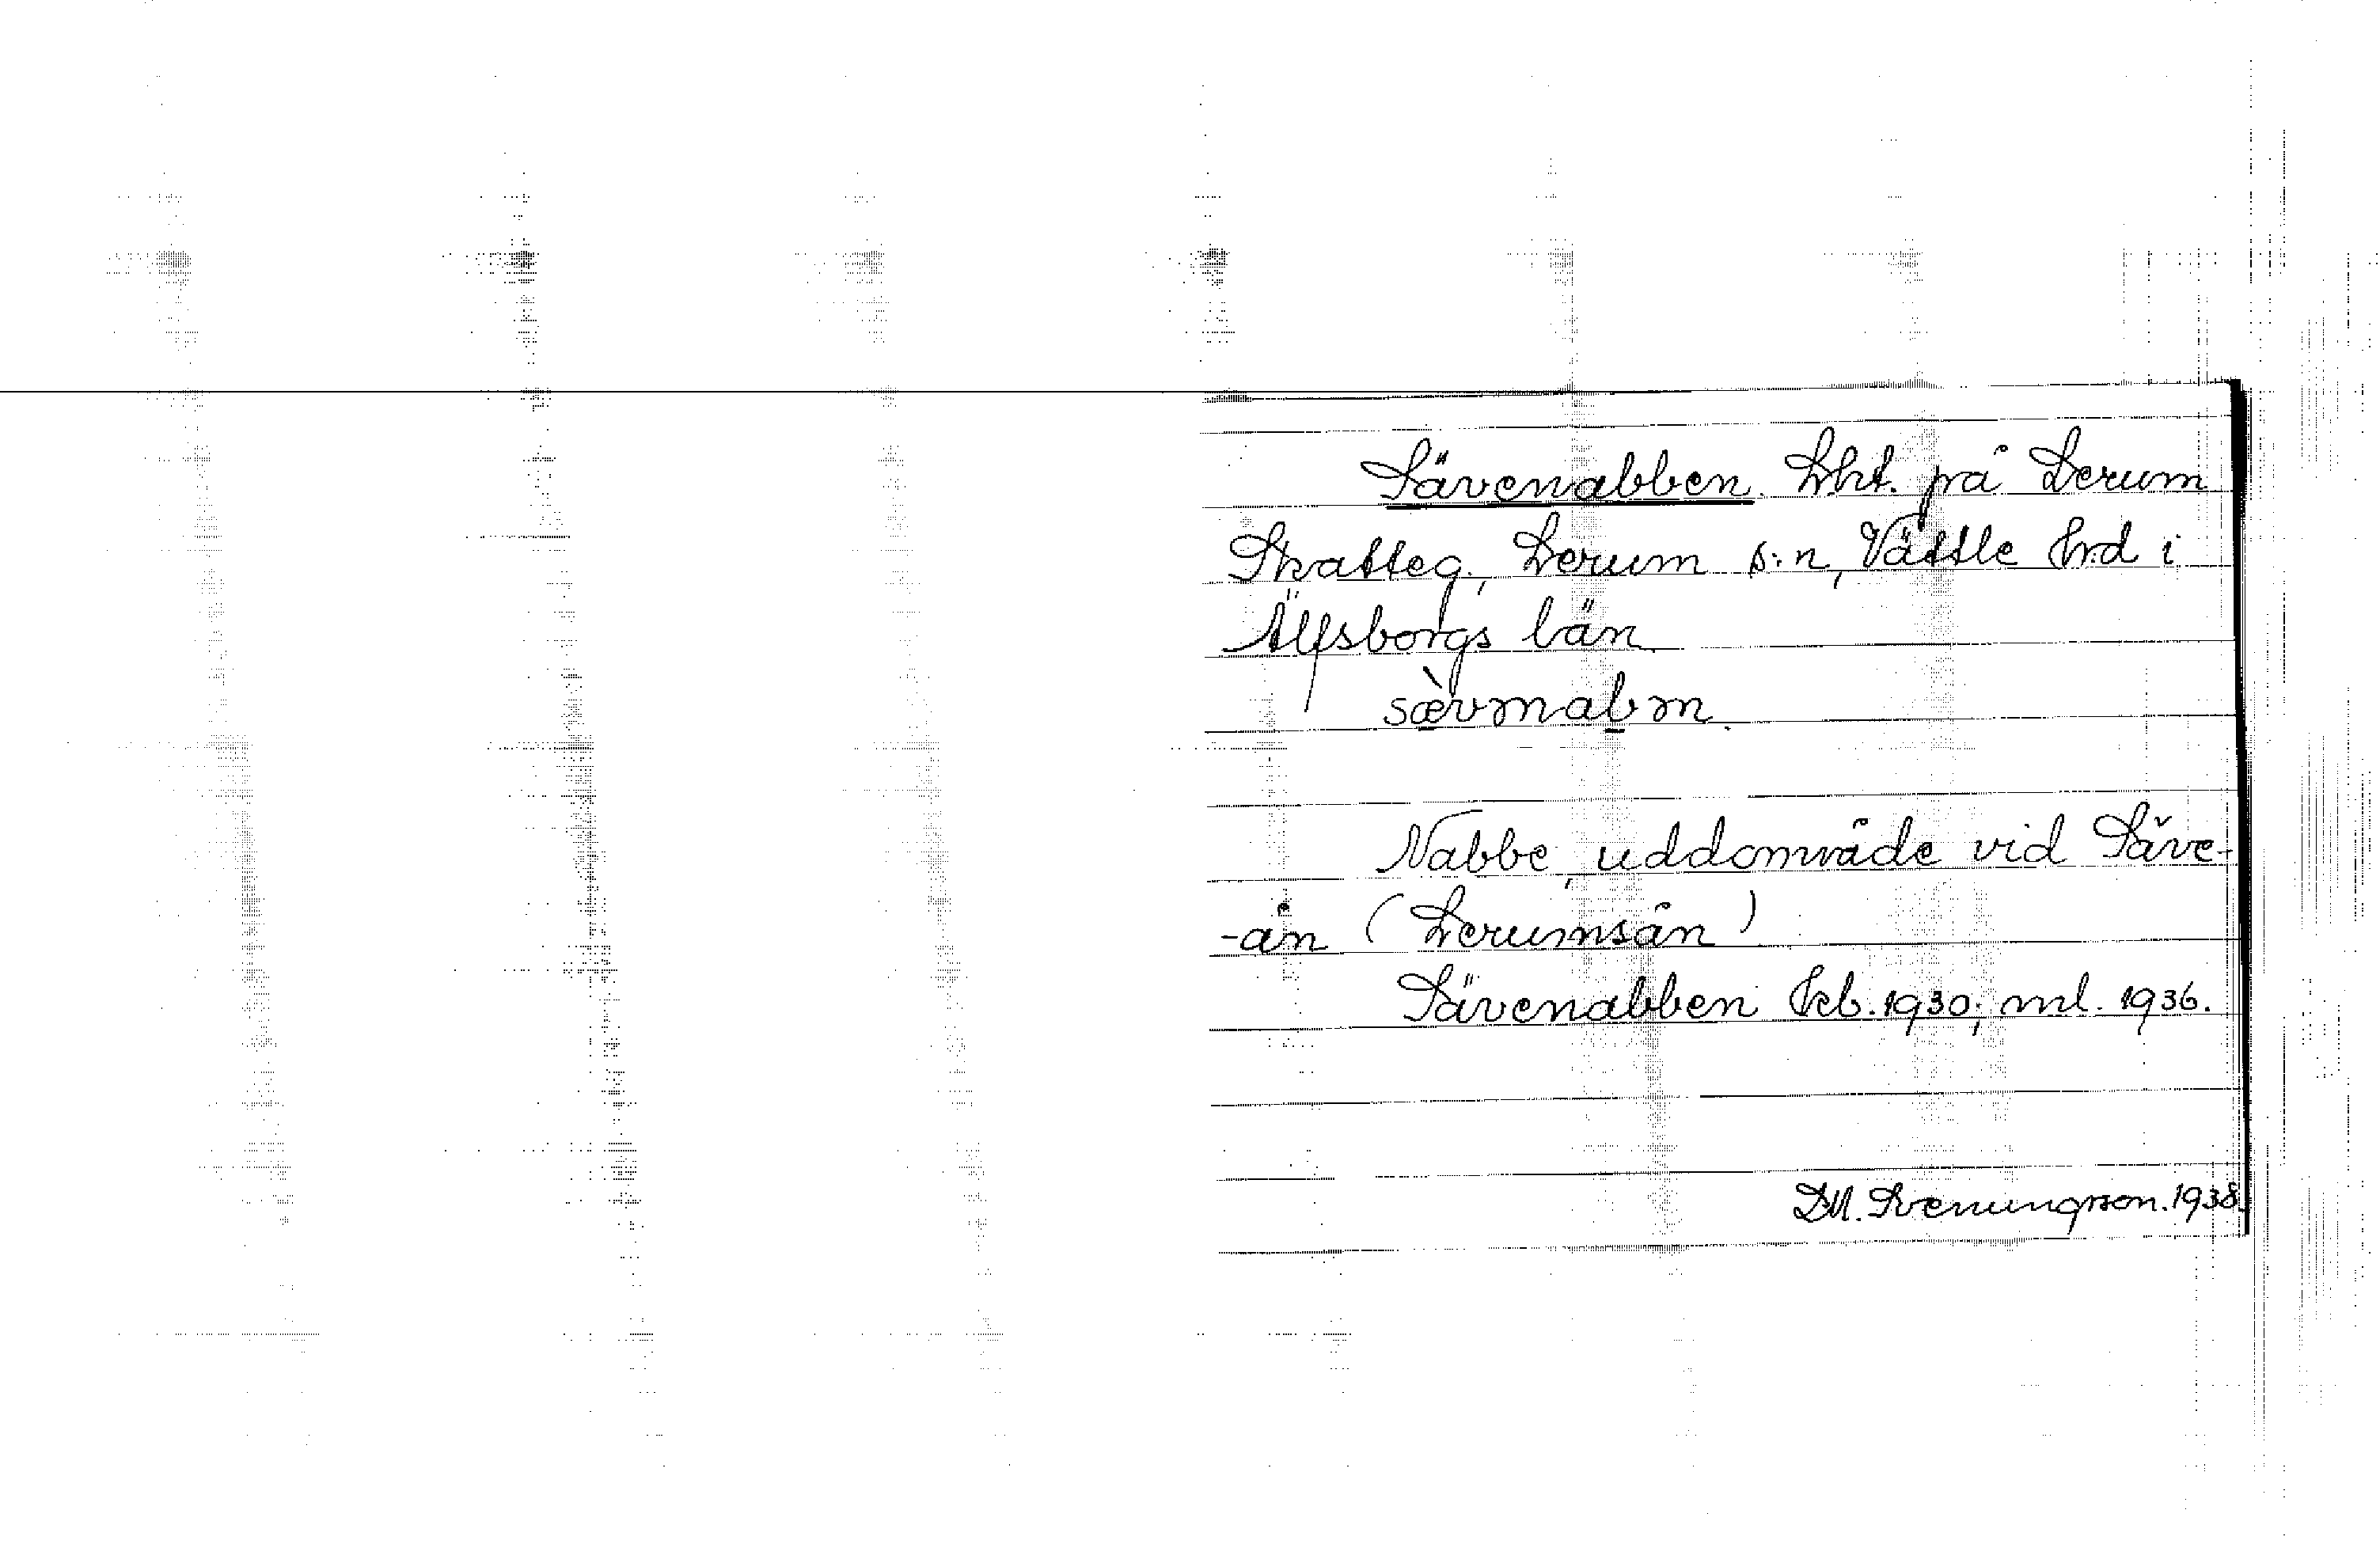 Sävenabben. Lht. på Lerum
Skatteg., Lerum s:n, Vättle hrd i
Älfsborgs län.
sævmabm.
Nabbe, uddområde vid Säve-
-ån (Lerumsån)
Sävenabben Feb. 1930; ml. 1936.
DM. Svenungsson. 1938.